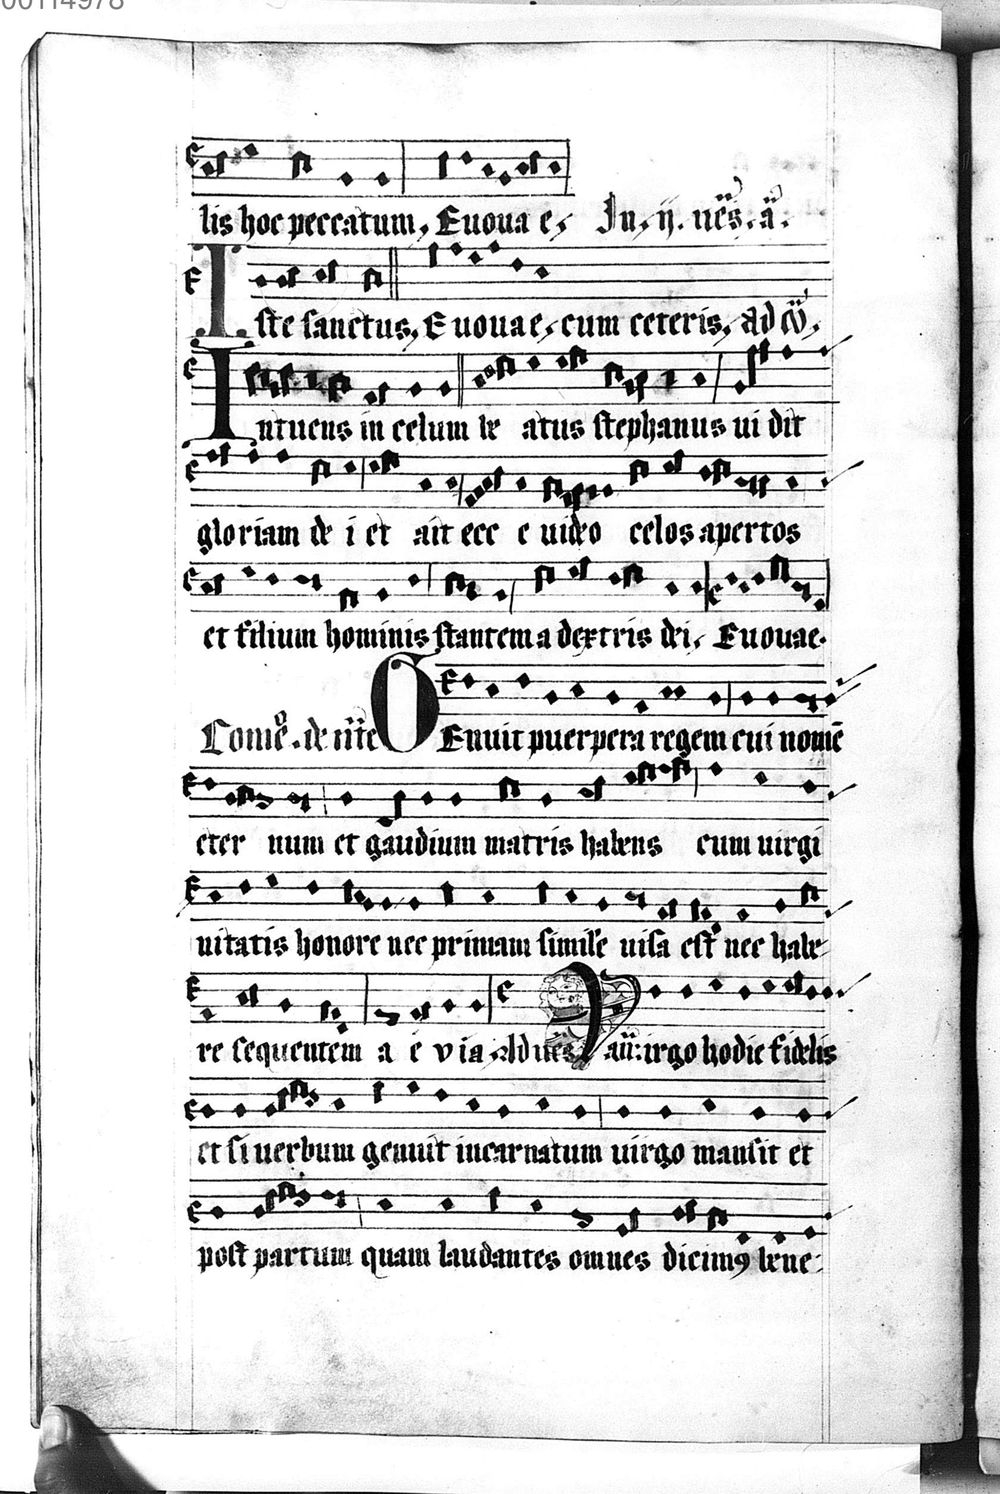 00114978
lis hoc peccatum, Euouae, In. ij. ues. a.
Iste sanctus, Euouae, cum ceteris, ad
Intuens in celum be atus stephanus ui dit
gloriam de i et ait ecc e uideo celos apertos
et filium hominis stantem a dextris dei, Euouae.
Genuit puerpera regem cui nomē
eter num et gaudium matris habens cum uirgi
nitatis honore nec primam simile uisa est nec habe
re sequentem a e via. Ad ues. aū. Virgo hodie fidelis
et si uerbum genuit incarnatum uirgo mansit et
post partum quam laudantes omnes dicimꝰ bene